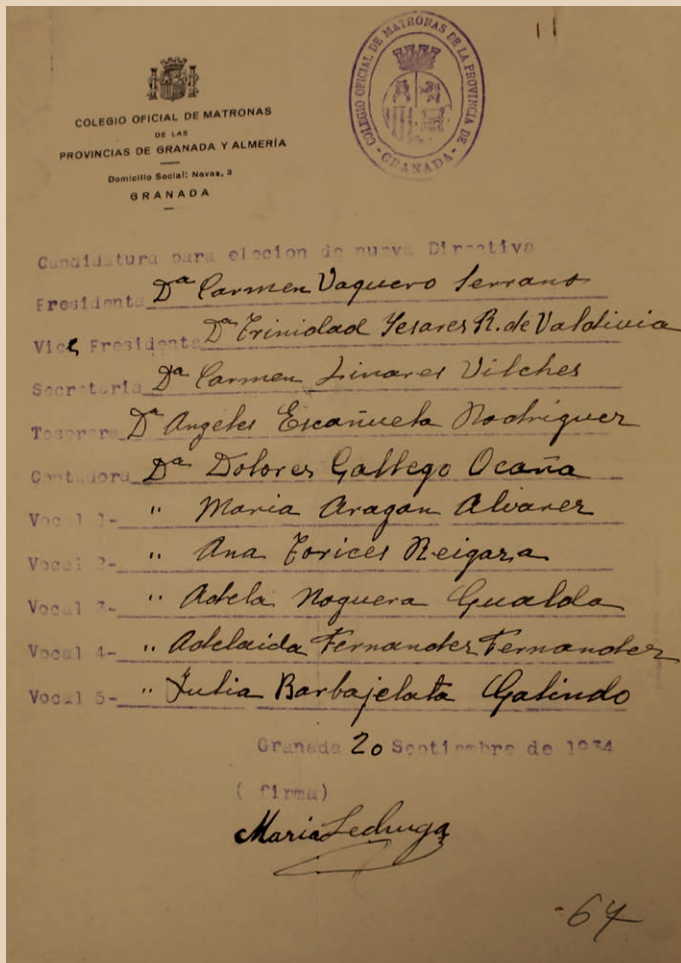 COLEGIO OFICIAL DE MATRONAS
DE LAS
PROVINCIAS DE GRANADA Y ALMERÍA
Domicilio Social: Navas, 3
GRANADA
COLEGIO OFICIAL DE MATRONAS DE LA PROVINCIA DE - GRANADA -
Candidatura para eleccion de nueva Directiva
Presidenta Dª Carmen Vaquero Serrano
Vice Presidenta Dª Trinidad Yesares R. de Valdivia
Secretaria Dª Carmen Linares Vilches
Tesorera Dª Angeles Escañuela Rodriguez
Contadora Dª Dolores Gallego Ocaña
Vocal 1- " Maria Aragon Alvarez
Vocal 2- " Ana Torices Reigara
Vocal 3- " Adela Noguera Gualda
Vocal 4- " Adelaida Fernandez Fernandez
Vocal 5- " Julia Barbajelata Galindo
Granada 20 Septiembre de 1934
( firma)
Maria Lechuga
-67